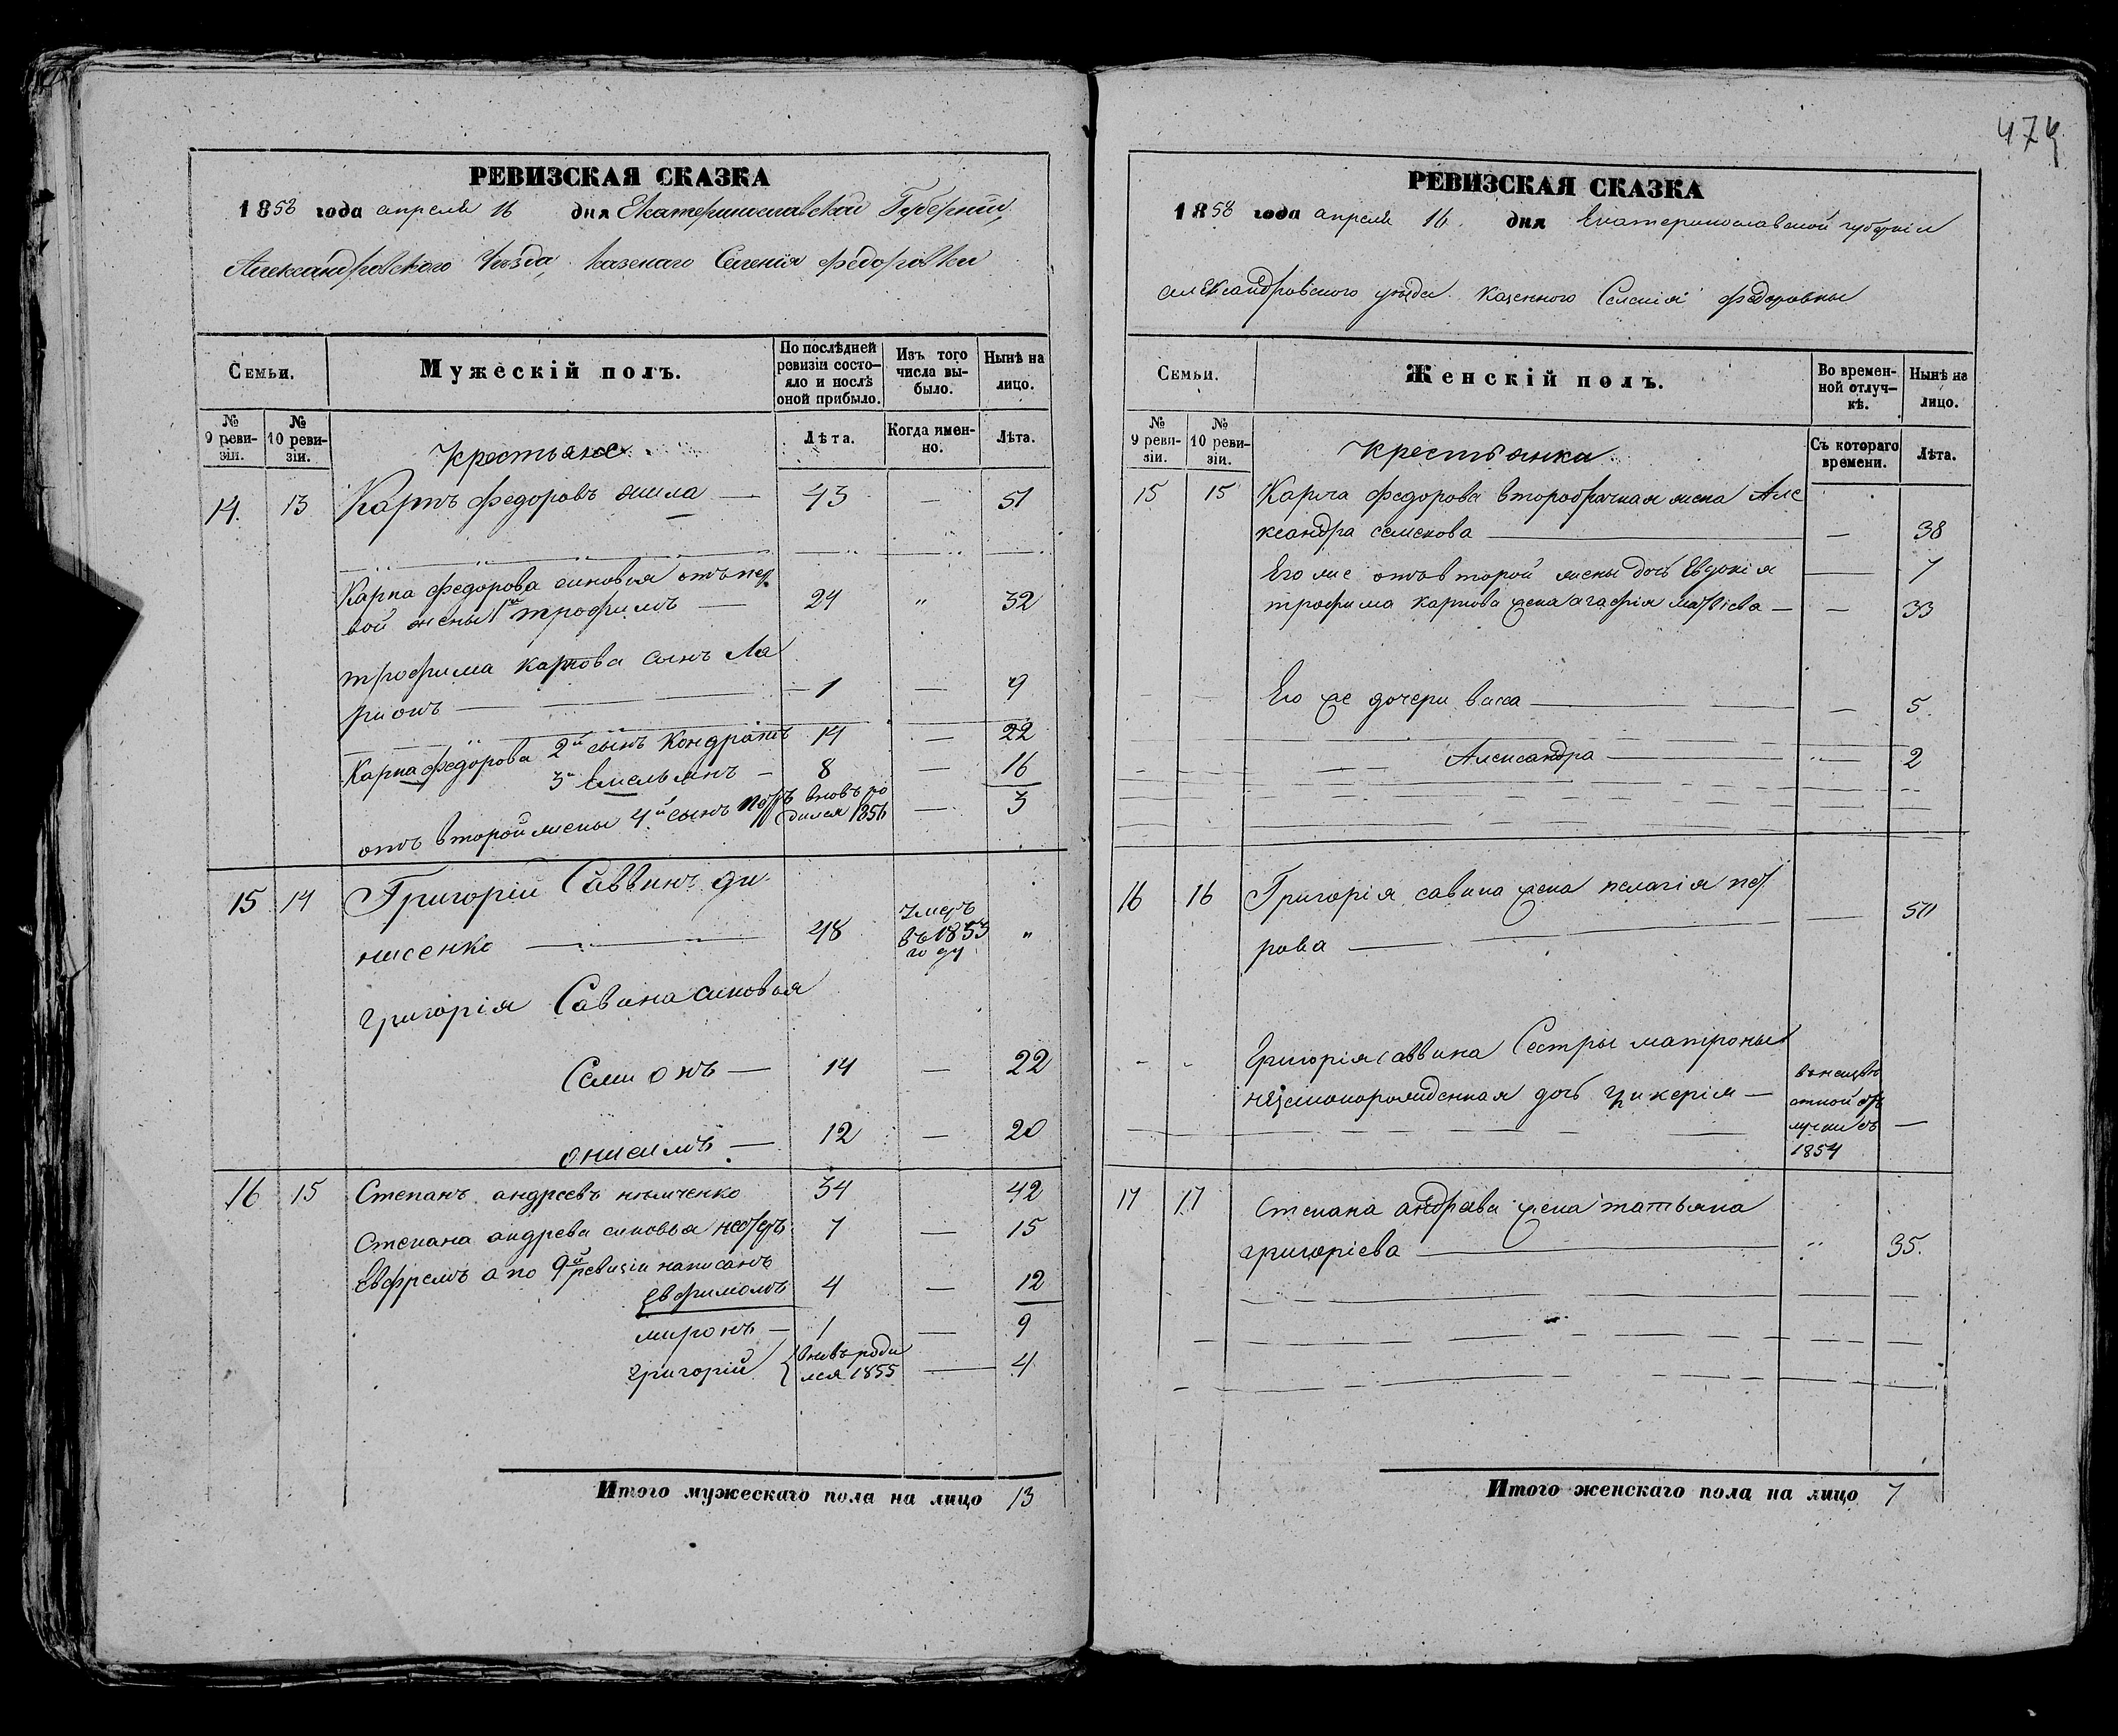 474
РЕВИЗСКАЯ СКАЗКА
1858 года апреля 16 дня Екатеринославской Губернии,
Александровского Уѣзда, Казенаго Селенія Федоровки
Семьи.
Мужескій полъ.
По послѣдней ревизіи состояло и послѣ оной прибыло.
Изъ того числа выбыло.
Нынѣ на лицо.
№ 9 ревизіи.
№ 10 ревизіи.
Крестьяне
Лѣта.
Когда именно.
Лѣта.
14. 13 Карпъ Федоровъ — 43 — 51
Карпа Федорова синовья отъ пер
вой жены 1й Трофимъ — 24 " 32
Трофима Карпова сынъ Ла
рионъ — 1 — 9
Карпа Федорова 2й сынъ Кондратъ 14 — 22
3й Емельянъ — 8 — 16
отъ второй жены 4й сынъ Петръ вновь ро
дился 1856 — 3
15 14 Григорій Саввинъ Ди
нисенко — 48 Умеръ въ 1853 году "
Григорія Савина синовья
Семионъ — 14 — 22
Онисимъ — 12 — 20
16 15 Степанъ андреевъ 34 42
Степана андрева синовья 7 — 15
Евфремъ а по 9й ревизіи написанъ
Евфимомъ 4 — 12
миронъ — 1 — 9
григорій { вновь роди
лся 1855 — 4
Итого мужескаго пола на лицо 13
РЕВИЗСКАЯ СКАЗКА
1858 года апреля 16 дня Екатеринославской губернии
александровского уезда казенного Селения Федоровки
Семьи.
Женскій полъ.
Во временной отлучкѣ.
Нынѣ на лицо.
№ 9 ревизіи.
№ 10 ревизіи.
крестьянки
Съ котораго времени.
Лѣта.
15 15 Карпа Федорова второбрачная жена Але
ксандра семенова — — 38
Его же отъ второй жены дочь Евдокія — 7
трофима карпова жена агафія матвіева — — 33
Его же дочери васса — — 5
Александра — " 2
16 16 Григорія савина жена пелагія пет
рова — — 50
Григорія саввина Сестры матроны
незаконорожденная дочь гликерія —
1854 —
17 17 Степана андрева жена татьяна
григоріева — " 35.
Итого женскаго пола на лицо 7